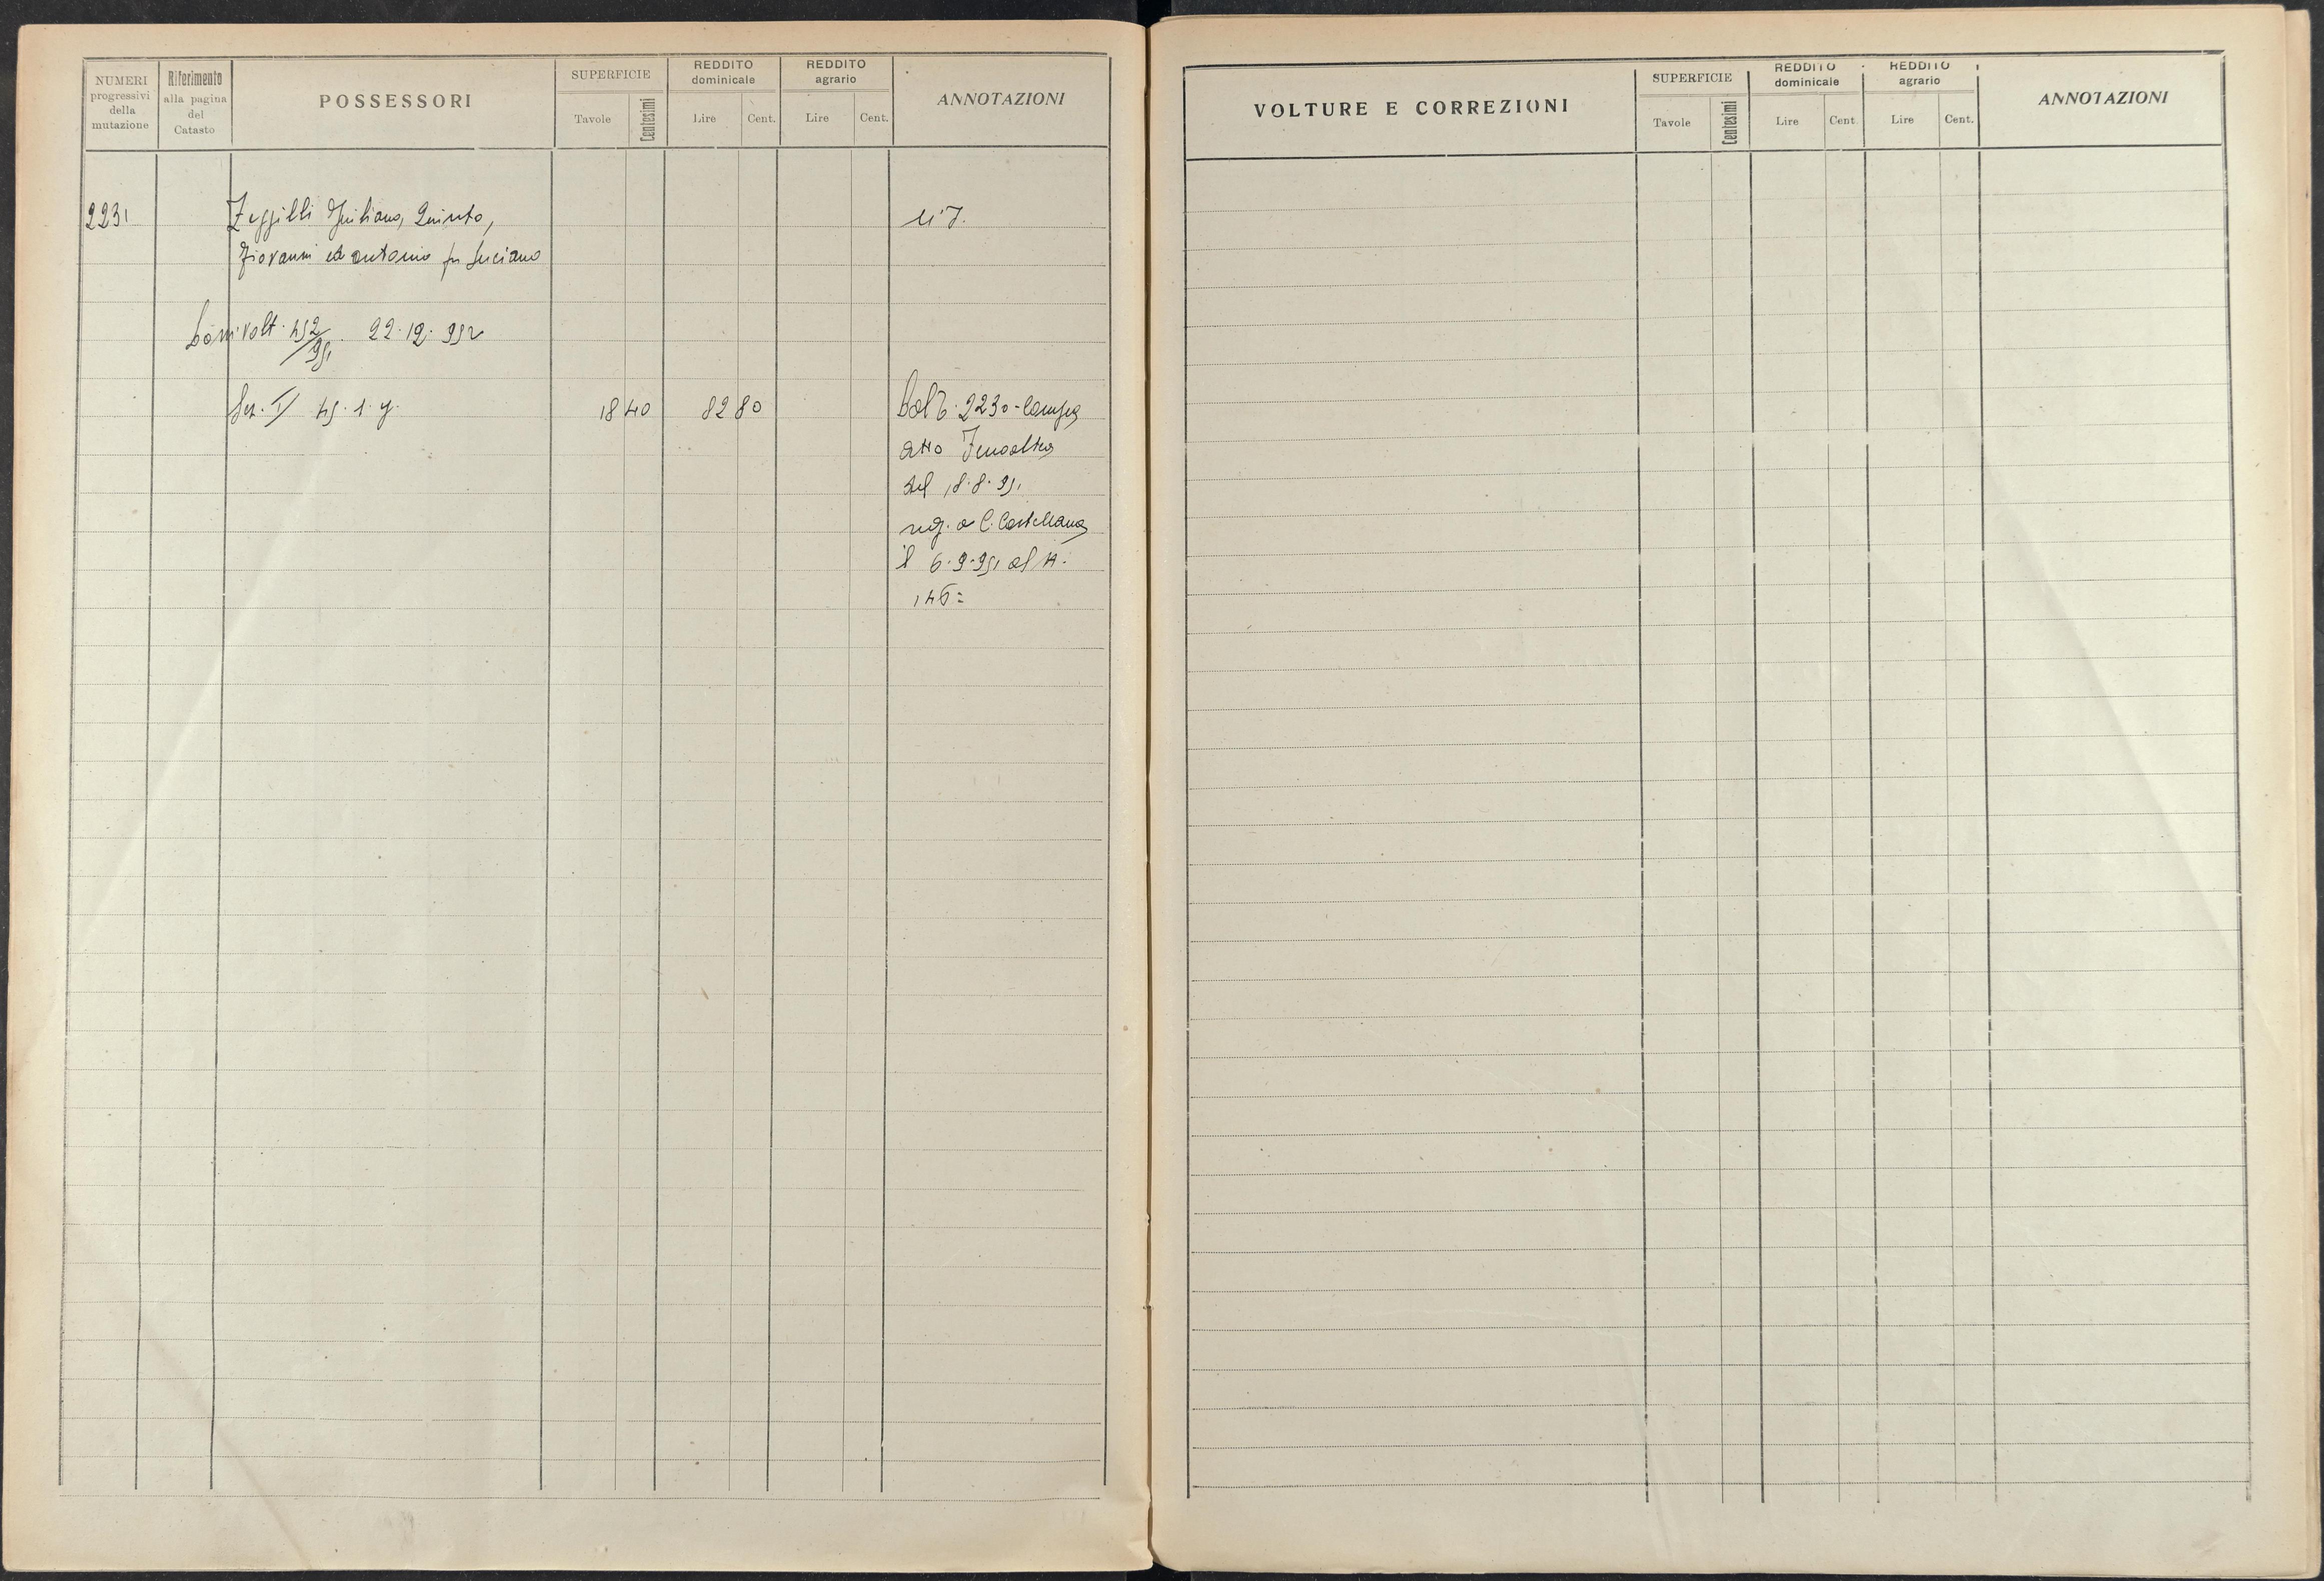 NUMERI progressivi della mutazione
Riferimento alla pagina del Catasto
POSSESSORI
SUPERFICIE
Tavole Centesimi
REDDITO dominicale
Lire Cent.
REDDITO agrario
Lire Cent.
ANNOTAZIONI
2231
Giuliano, Quinto,
Giovanni ed Antonio fu Luciano
22.12.952
Sez. I
18 40 82 80
2230
atto
del 18.8.951
reg. a C. Castellana
il 6.9.951 al N.
146=
VOLTURE E CORREZIONI
SUPERFICIE
Tavole Centesimi
REDDITO dominicale
Lire Cent.
REDDITO agrario
Lire Cent.
ANNOTAZIONI